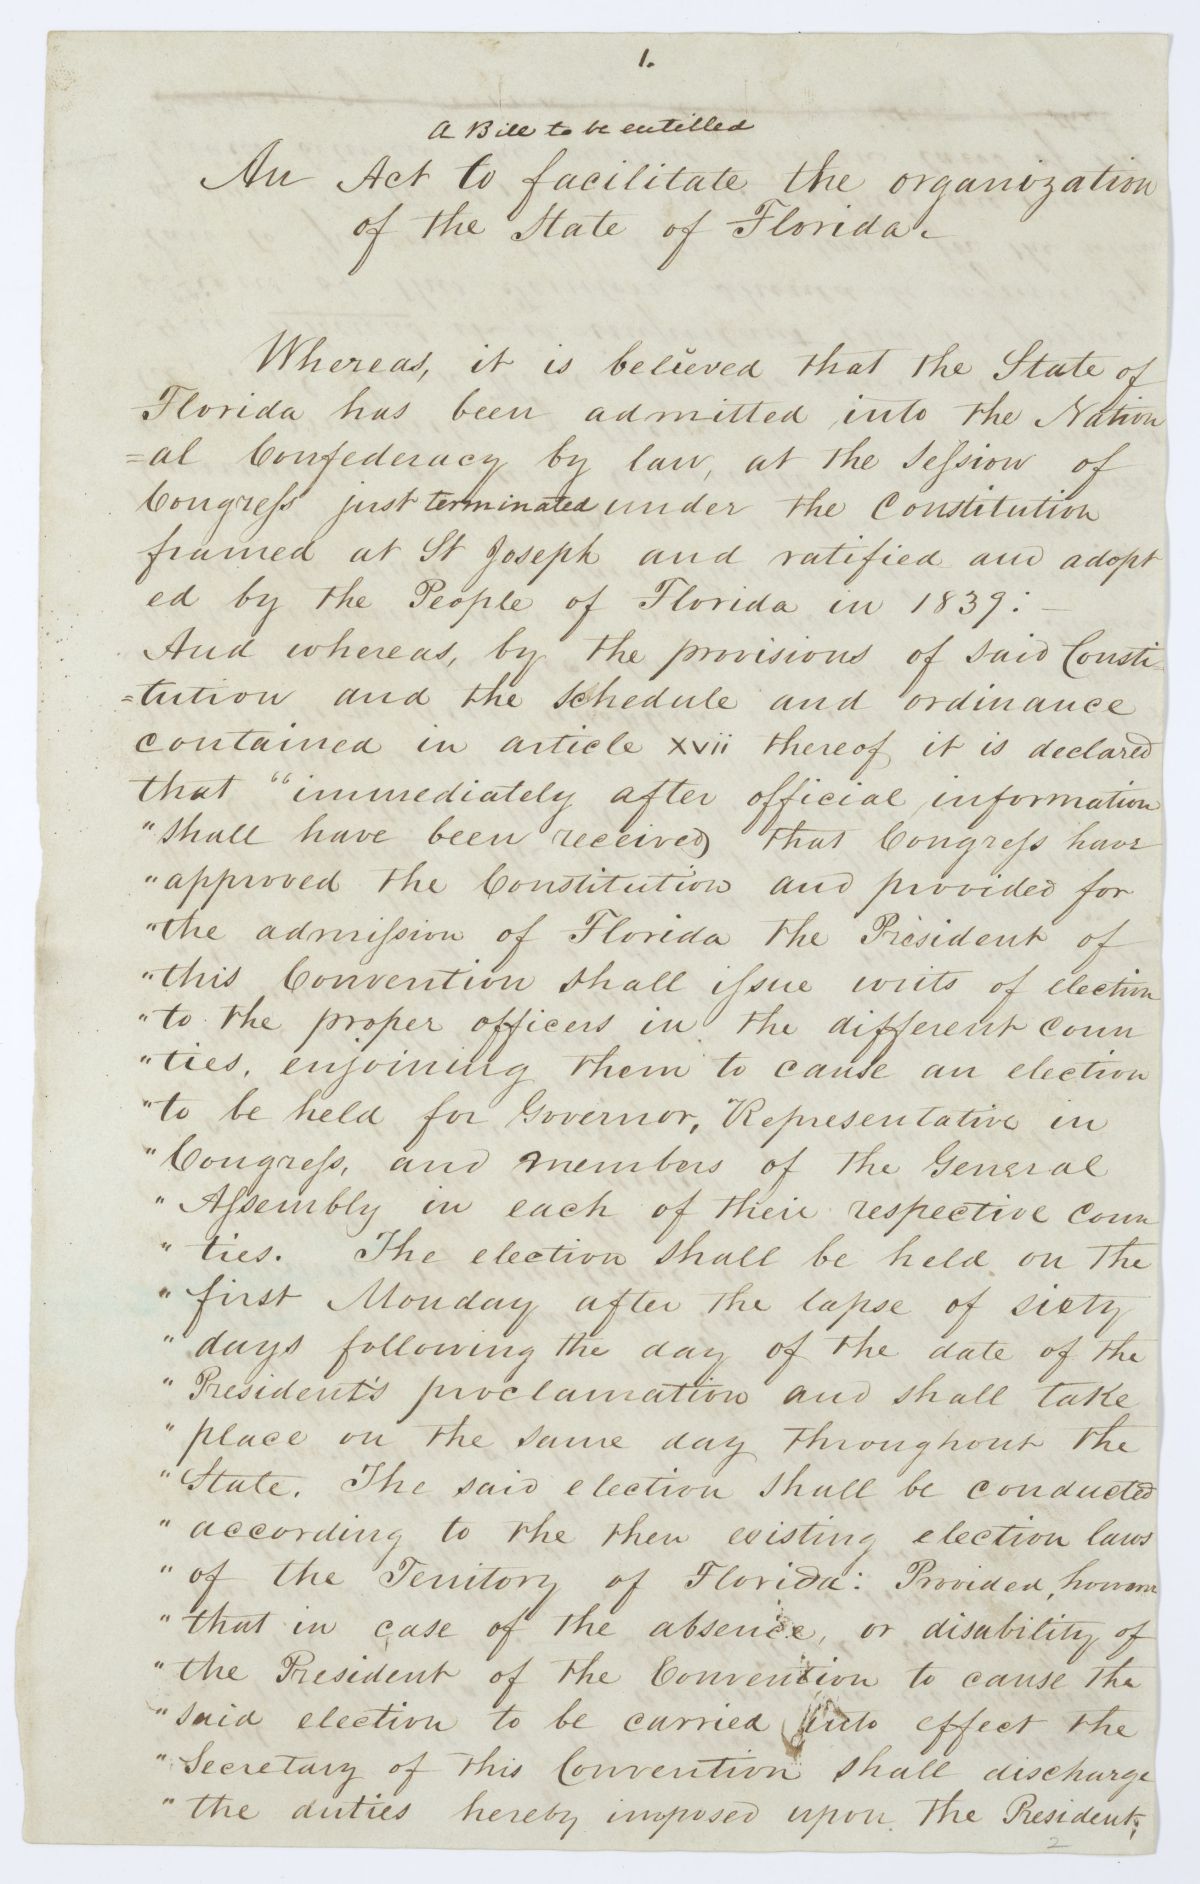 1.
A Bill to be entitled
An Act to facilitate the organization
of the State of Florida.
Whereas, it is believed that the State of
Florida has been admitted into the Nation
=al Confederacy by law, at the Session of
Congress just terminated under the Constitution
framed at St Joseph and ratified and adopt
ed by the People of Florida in 1839: —
And whereas, by the provisions of said Consti=
=tution and the schedule and ordinance
contained in article xvii thereof it is declared
that "immediately after official information
"shall have been received that Congress have
"approved the Constitution and provided for
"the admission of Florida the President of
"this Convention shall issue writs of election
"to the proper officers in the different coun
"ties, enjoining them to cause an election
"to be held for Governor, Representative in
"Congress, and members of the General
"Assembly in each of their respective coun
"ties. The election shall be held on the
"first Monday after the lapse of sixty
"days following the day of the date of the
"President's proclamation and shall take
"place on the same day throughout the
"State. The said election shall be conducted
"according to the then existing election laws
"of the Territory of Florida: Provided, however
"that in case of the absence, or disability of
"the President of the Convention to cause the
"said election to be carried into effect the
"Secretary of this Convention shall discharge
"the duties hereby imposed upon the President;
2